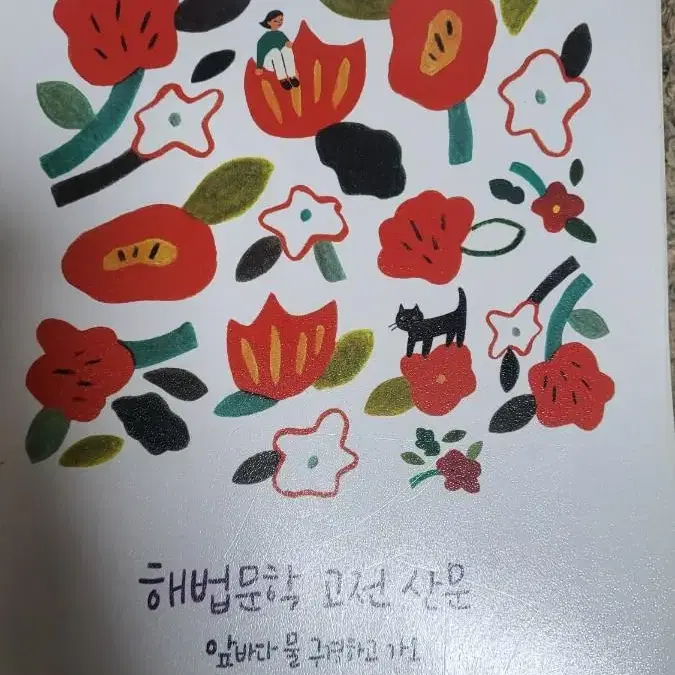 해법문학 고전 산문
앞바다 물 구경하고 가소